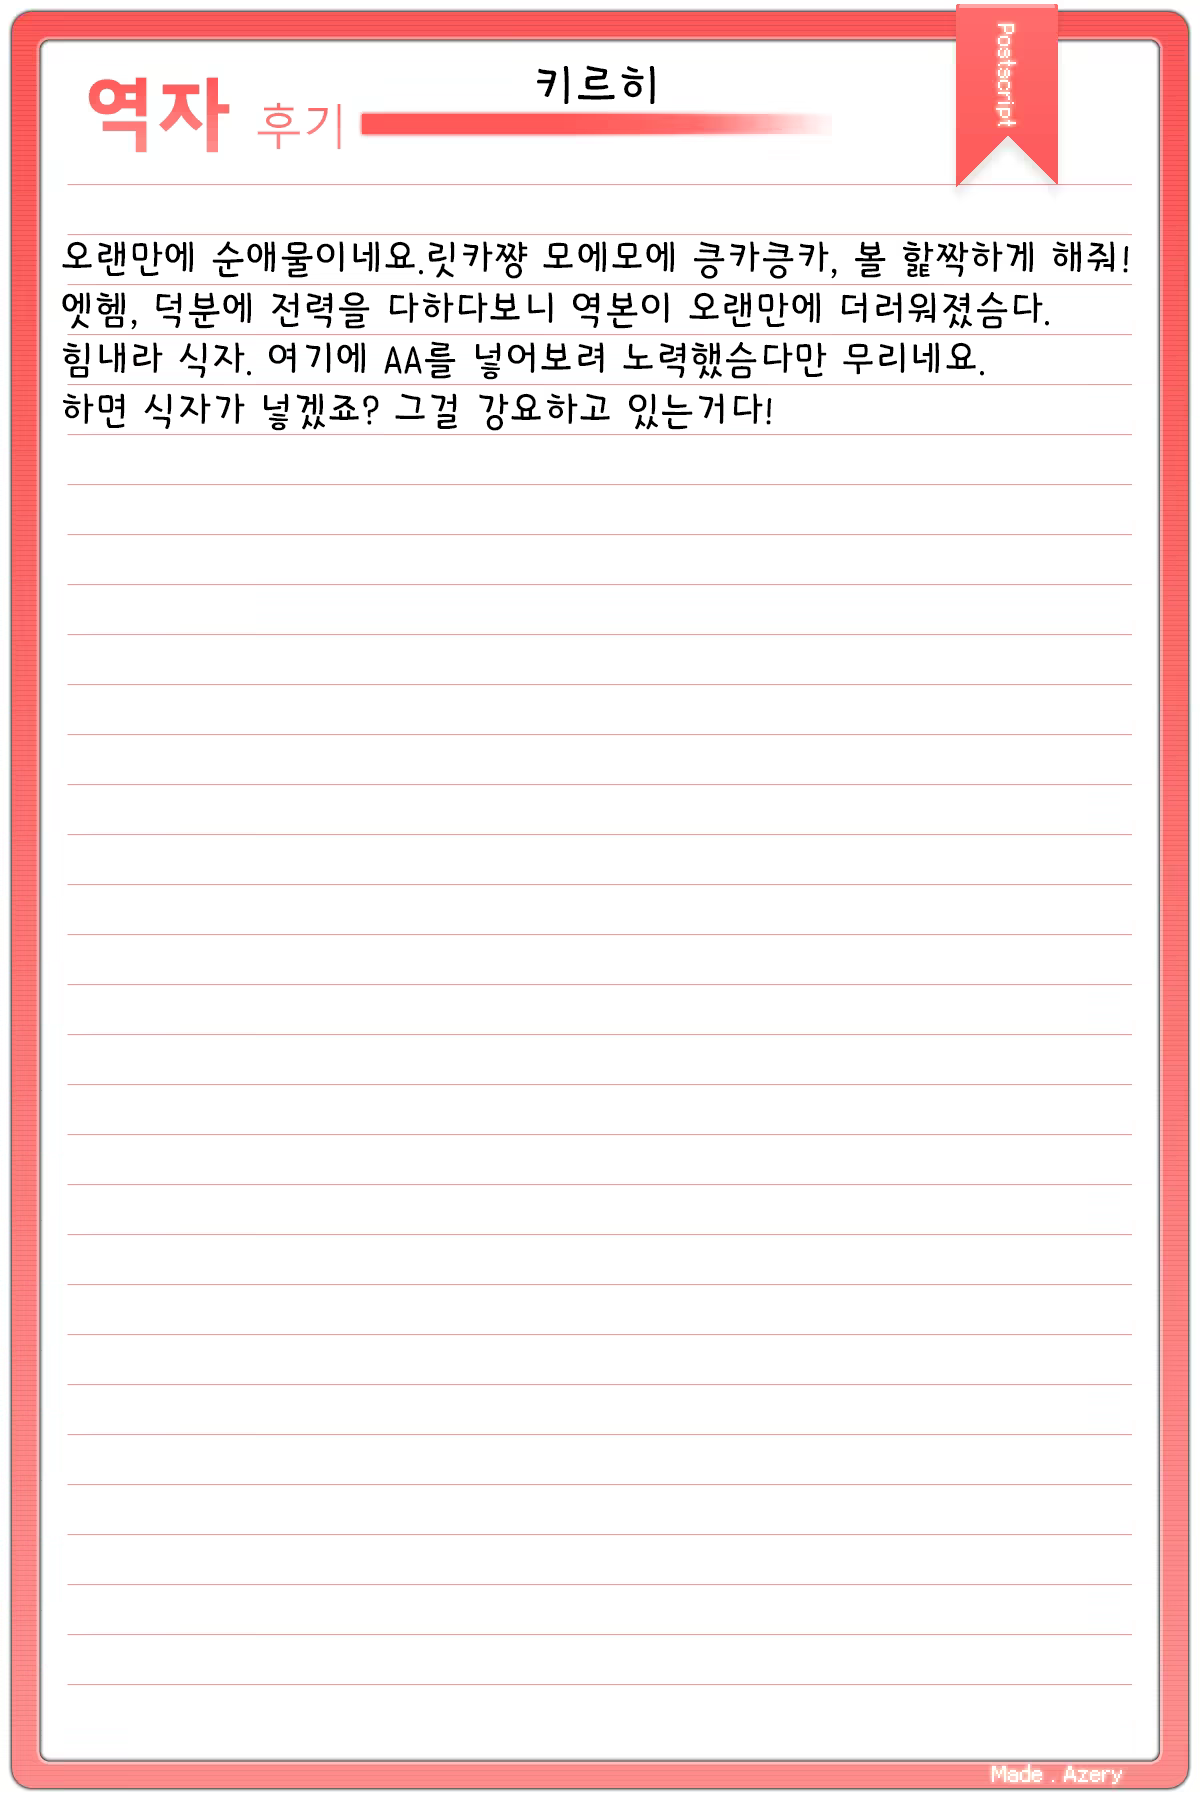 Postscript
키르히
역자 후기
오랜만에 순애물이네요.릿카쨩 모에모에 킁카킁카, 볼 핥짝하게 해줘!
엣헴, 덕분에 전력을 다하다보니 역본이 오랜만에 더러워졌슴다.
힘내라 식자. 여기에 AA를 넣어보려 노력했슴다만 무리네요.
하면 식자가 넣겠죠? 그걸 강요하고 있는거다!
Made . Azery